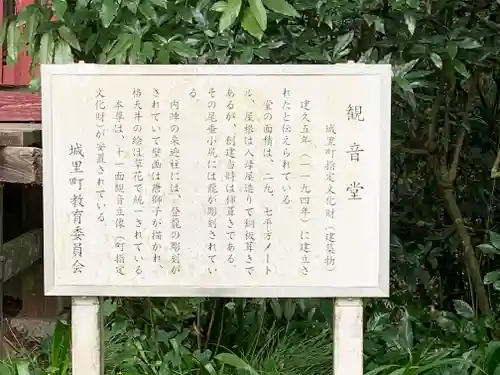 観音堂
城里町指定文化財(建築物)
建久五年(一一九四年)に建立さ
れたと伝えられている。
堂の面積は、二九、七平方メート
ル、屋根は入母屋造りで銅板葺きで
あるが、創建当時は柿葺きである。
その尾垂小尻には龍が彫刻されてい
る。
内陣の来迎柱には、登龍の彫刻が
されていて壁画は唐獅子が描かれ、
格天井の絵は草花で統一されている。
本尊は、十一面観音立像(町指定
文化財)が安置されている。
城里町教育委員会